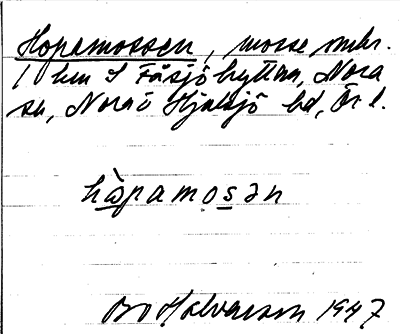 Hopamossen, mosse omkr.
1 km S Fåsjöhyttan, Nora
sn, Nora o Hjulsjö bd, Ör l.
hòpamosən
Bo Halvarson 1947